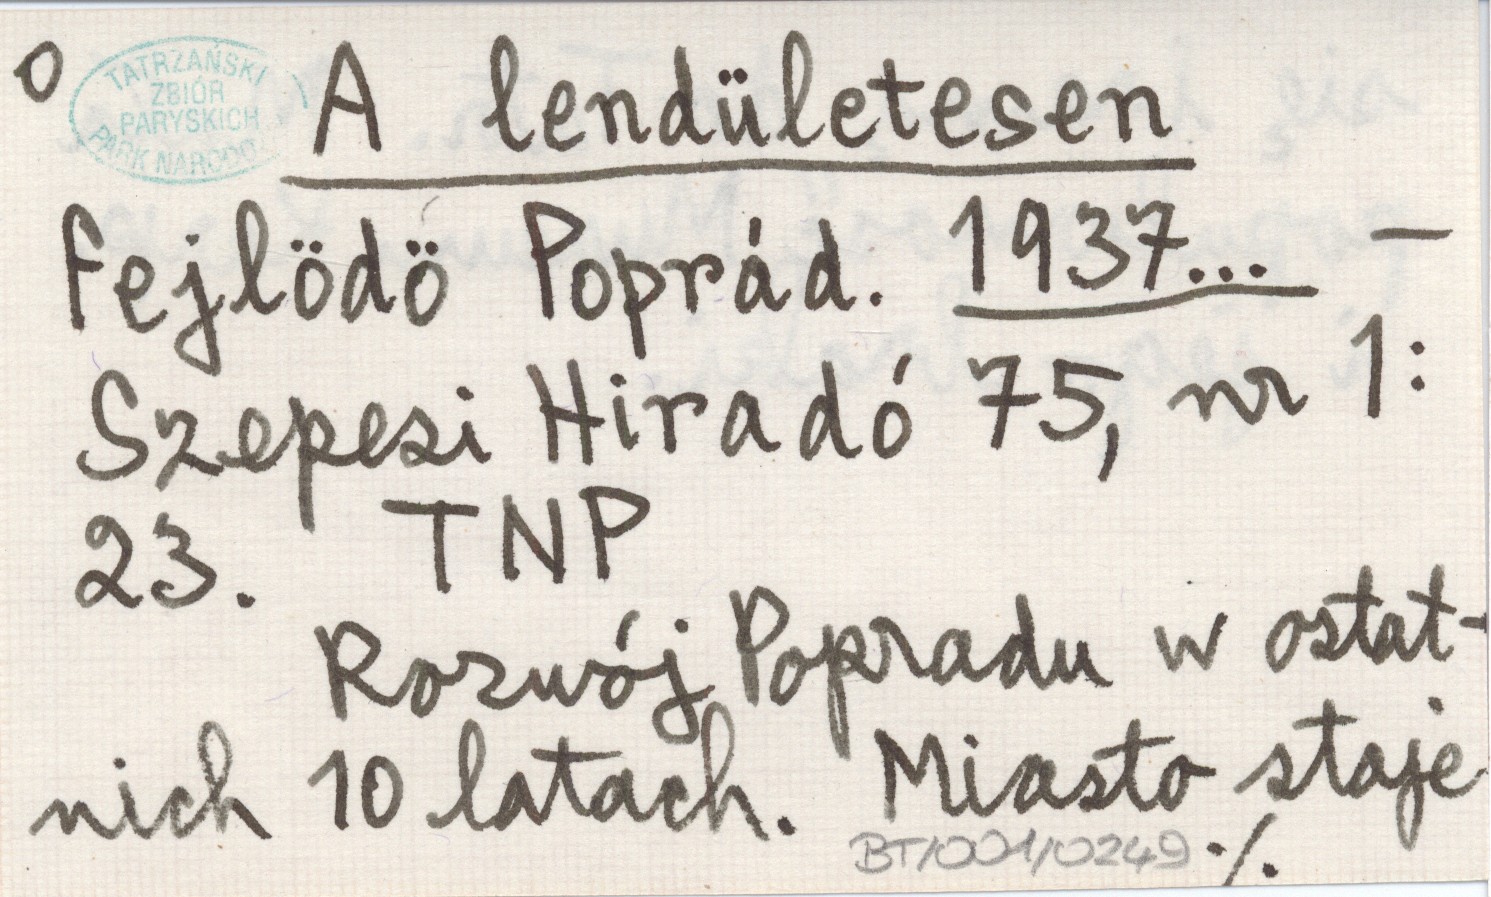 o
TATRZAŃSKI
ZBIÓR
PARYSKICH
PARK NARODO
A lendületesen
fejlödö Poprád. 1937... –
Szepesi Hiradó 75, nr 1:
23. TNP
Rozwój Popradu w ostat-
nich 10 latach. Miasto staje
BT/001/0249 ./.